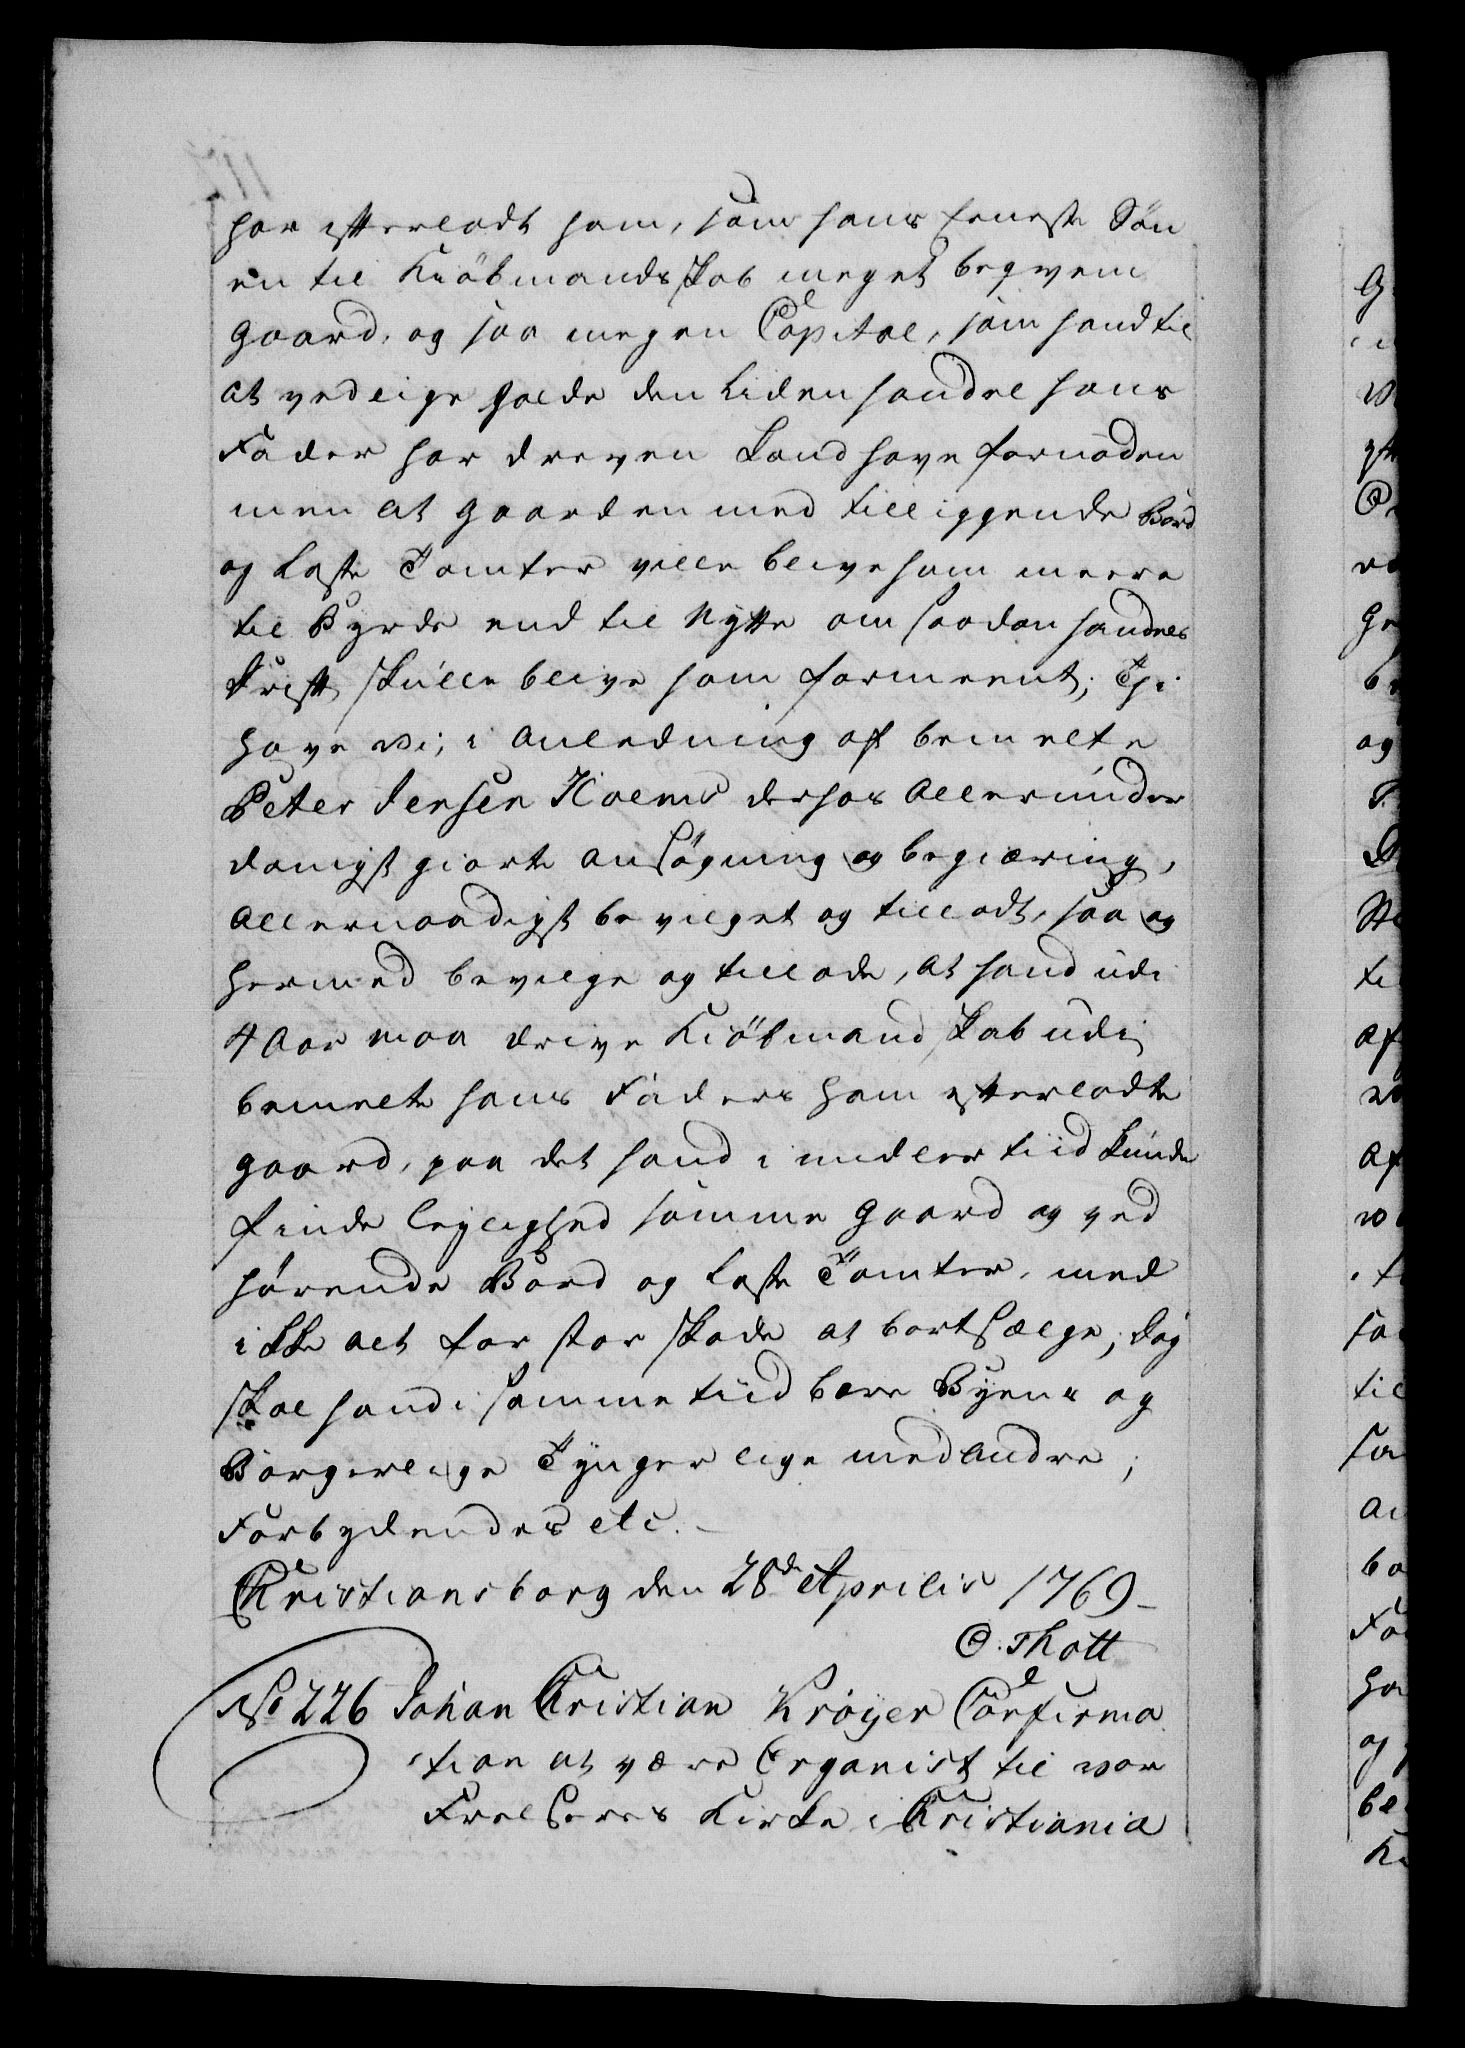 har efterladt ham, som hans Eeneste Søn
en til Kiöbmandskab meget beqvem
Gaard, og saa megen Capital, som hand til
at vedlige holde den Liden handel hans
Fader har dreven Kand have fornøden
men at Gaarden med tilliggende Bord
og Laste Tomter ville blive ham meere
til Byrde end til Nytte om saadan handels
Drift skulle blive ham formeent; Thi
have Vi, i Anledning af bemelte
Peter Jensen Holms derhos Allerunder
danigst giorte Ansøgning og begiæring,
Allernaadigst bevilget og tilladt, saa og
hermed bevilge og tillade, at hand udi
4 Aar maa drive Kiöbmandskab udi
bemelte hans Faders ham efterladte
Gaard, paa det hand imidlertiid kunde
finde lejlighed samme Gaard og ved
hørende Bord og Laste Tomter, med
ikke alt for stor Skade at bortsælge; dog
skal hand i samme tiid bære Byens og
Borgerlige Tynger lige med Andre;
Forbydendes etc.
Christiansborg den 28de Aprilis 1769
O. Thott
No 226 Johan Christian Krøyer Confirma
tion at være Organist til vor
Frelseres Kirke i Christiania